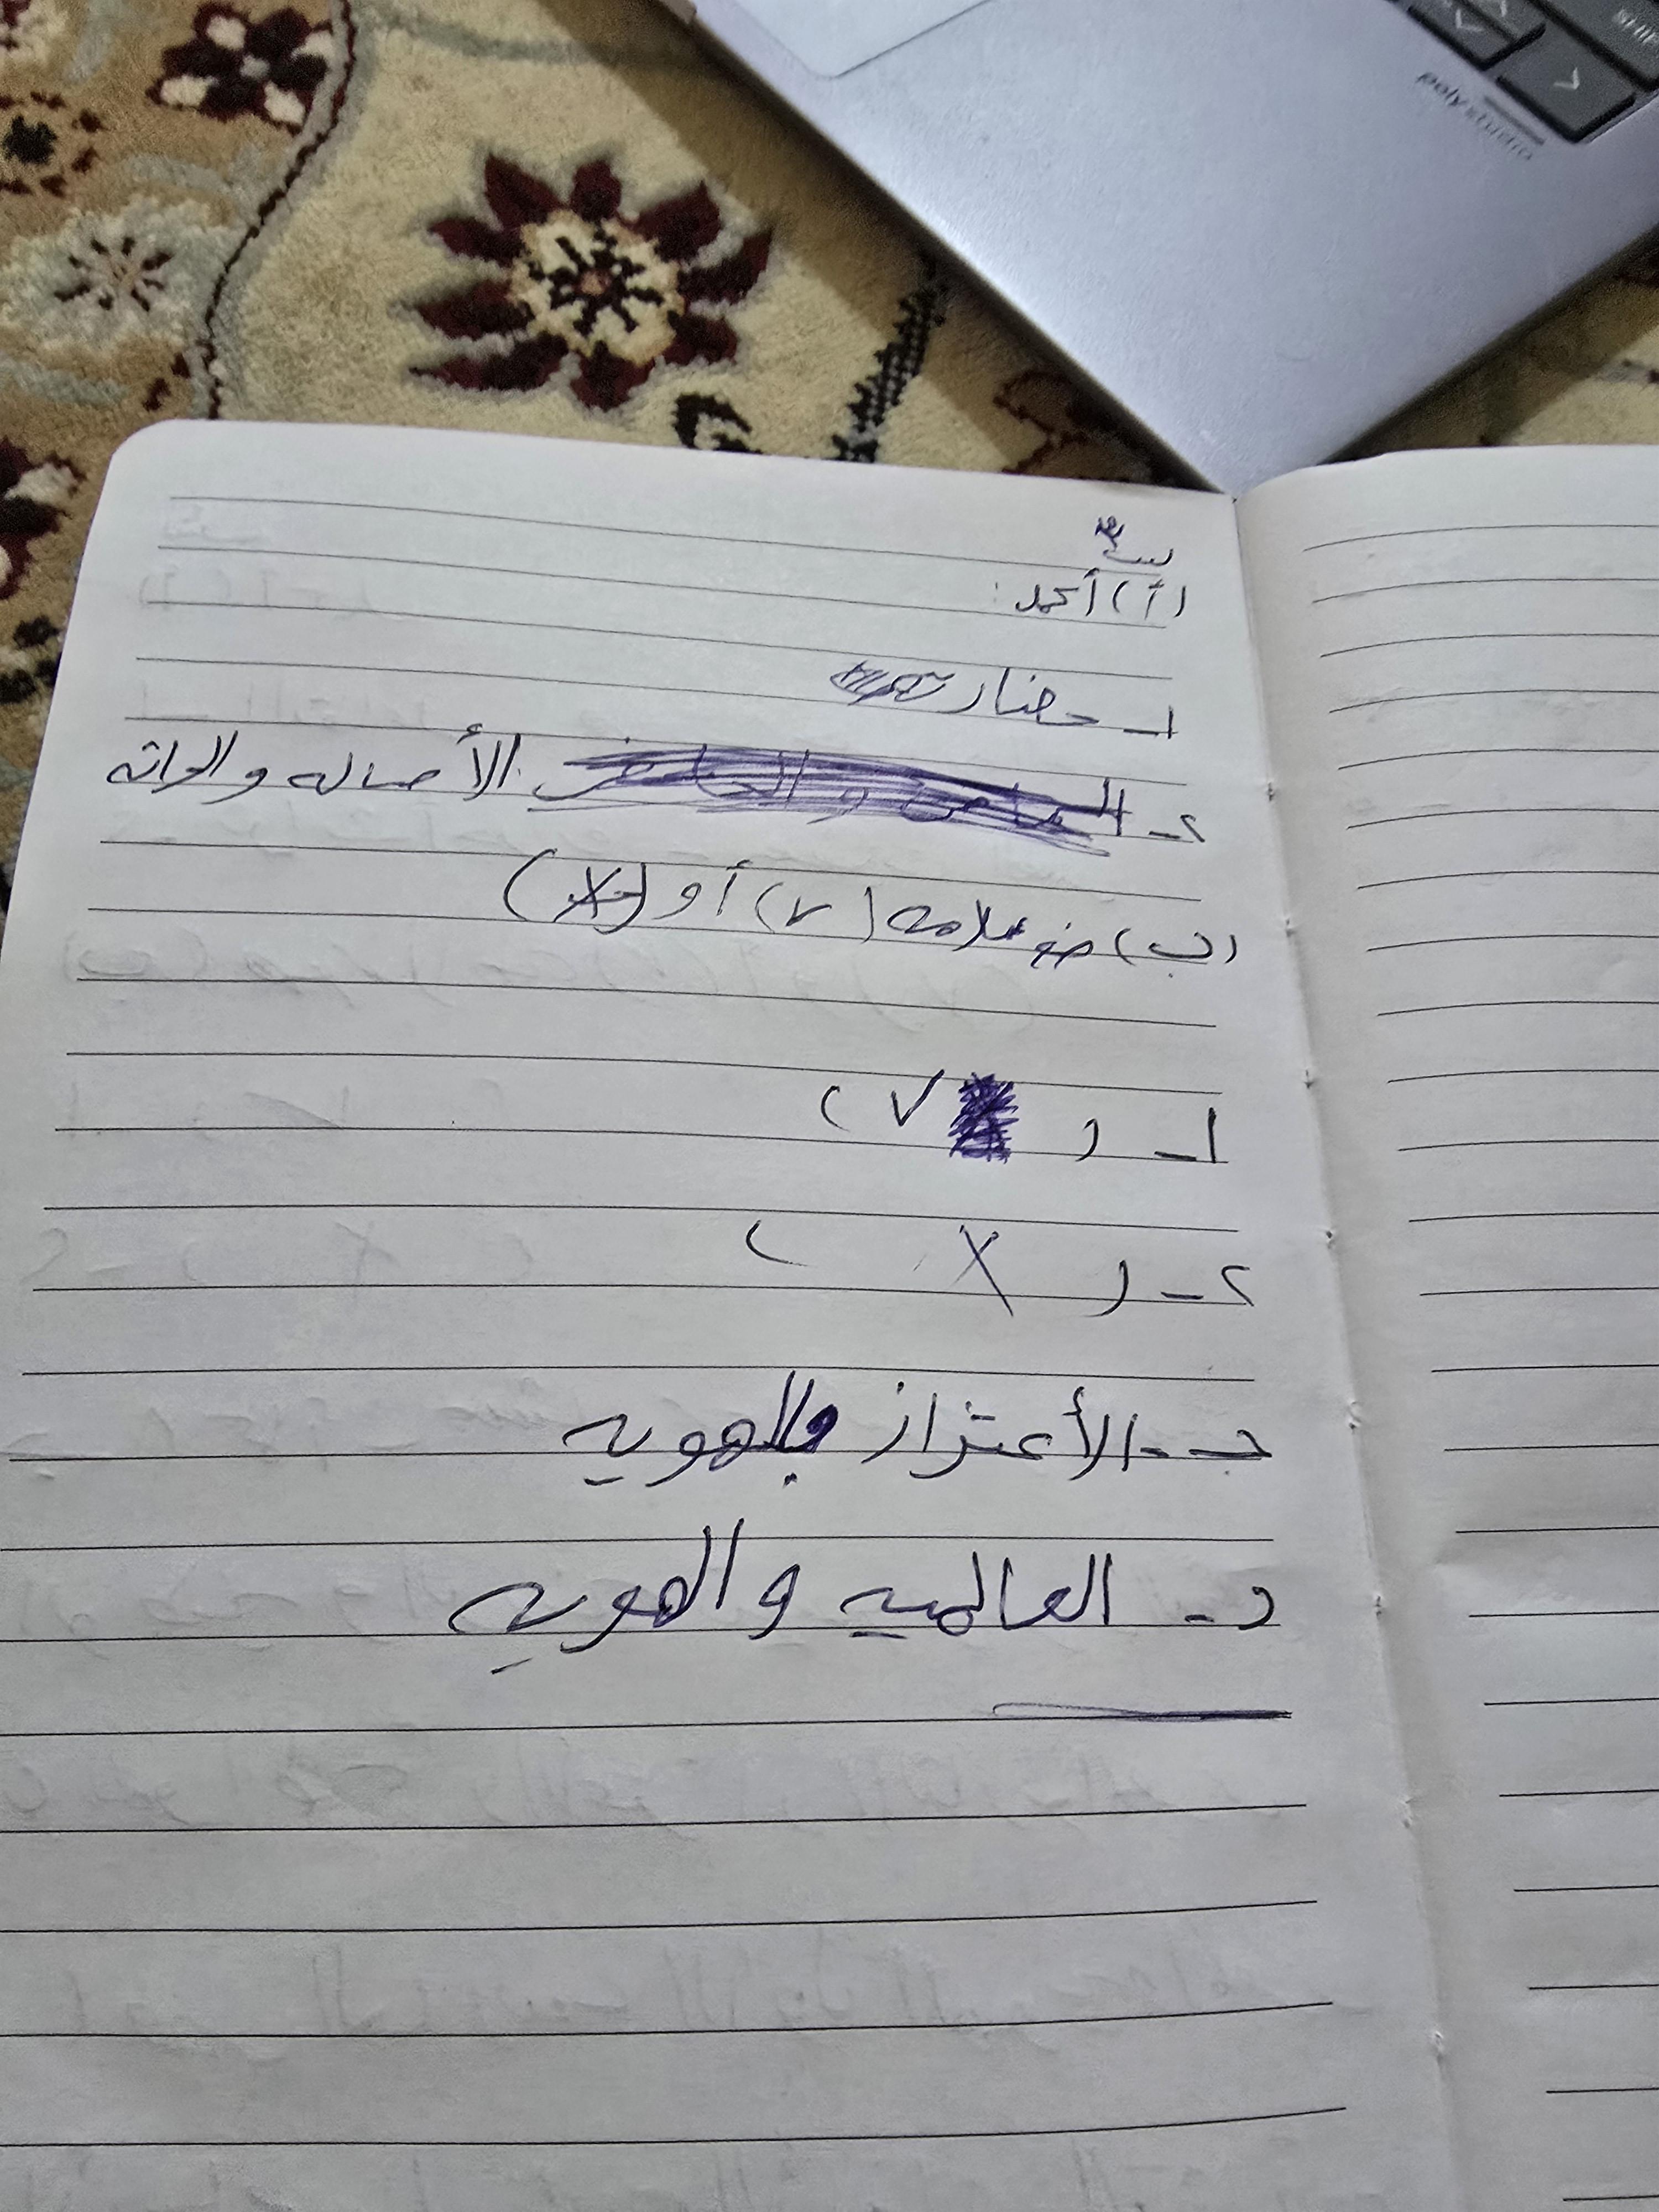 shift
poly studio
(أ) أكمل :
١- حضار
٢- الأصاله والراثه
(ب) ضع علامه (✓) أو (X)
١- ( ✓ )
٢- ( X )
ج- الأعتزاز بالهويه
د- العالميه والهويه